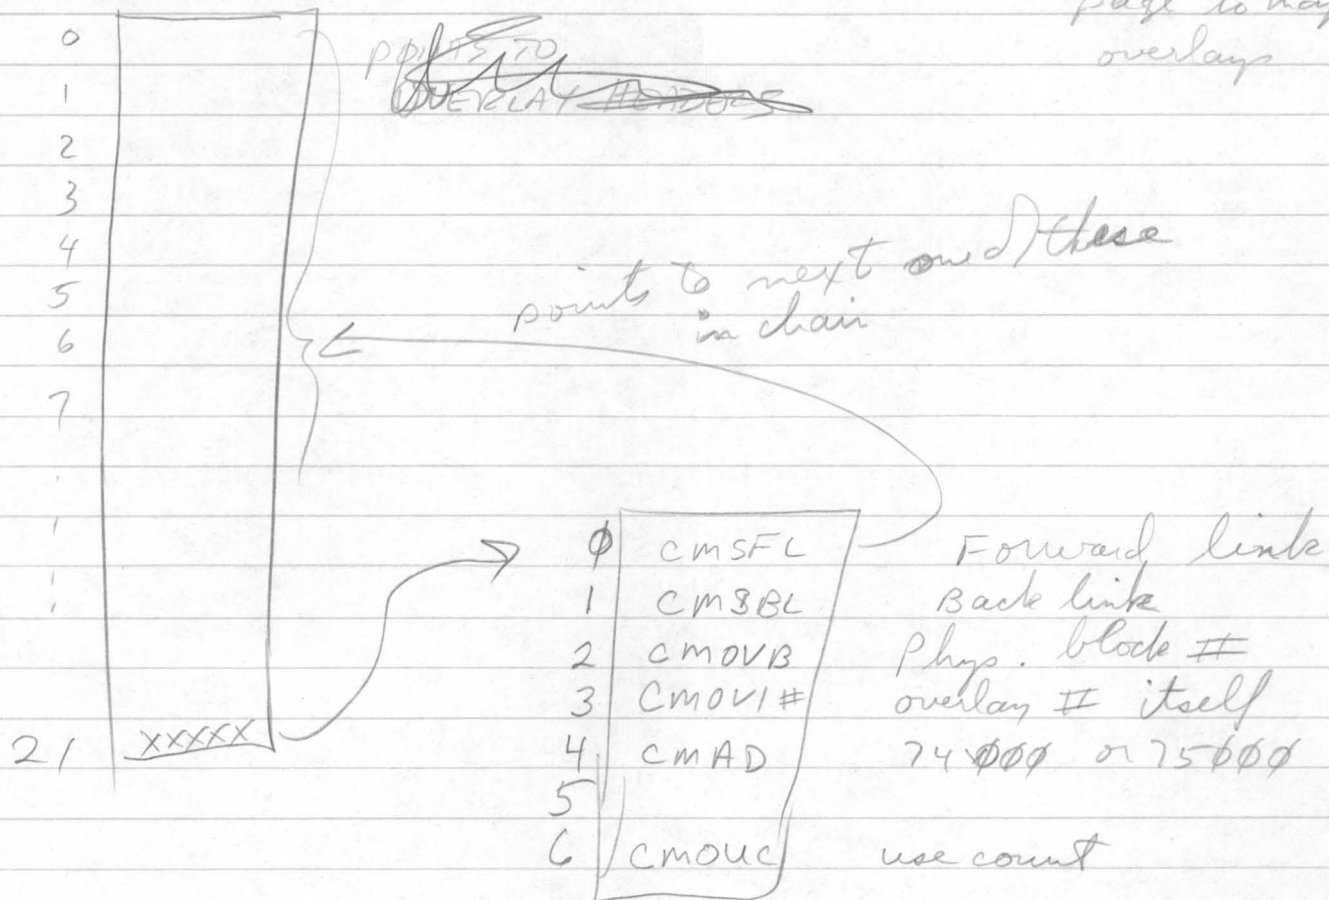 page to map
overlays
0
POINTS TO
1
OVERLAY HEADERS
2
3
4
5
6
7
points to next one of these
in chain
0 CMSFL Forward link
1 CMSBL Back link
2 CMOVB Phys. block #
3 CMOVI# overlay # itself
4 CMAD 74000 or 75000
5
6 CMOUC use count
21 XXXXX